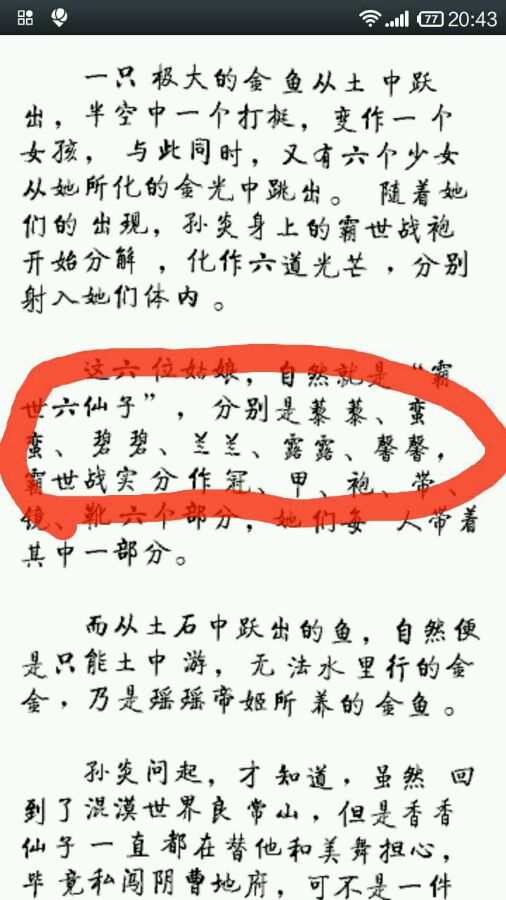 77 20:43
一只极大的金鱼从土中跃
出，半空中一个打挺，变作一个
女孩，与此同时，又有六个少女
从她所化的金光中跳出。随着她
们的出现，孙炎身上的霸世战袍
开始分解，化作六道光芒，分别
射入她们体内。
这六位姑娘，自然就是“霸
世六仙子”，分别是藜藜、蛮
蛮、碧碧、兰兰、露露、馨馨，
霸世战实分作冠、甲、袍、带、
镜、靴六个部分，她们每人带着
其中一部分。
而从土石中跃出的鱼，自然便
是只能土中游，无法水里行的金
金，乃是瑶瑶帝姬所养的金鱼。
孙炎问起，才知道，虽然回
到了混漠世界良常山，但是香香
仙子一直都在替他和美舞担心，
毕竟私闯阴曹地府，可不是一件